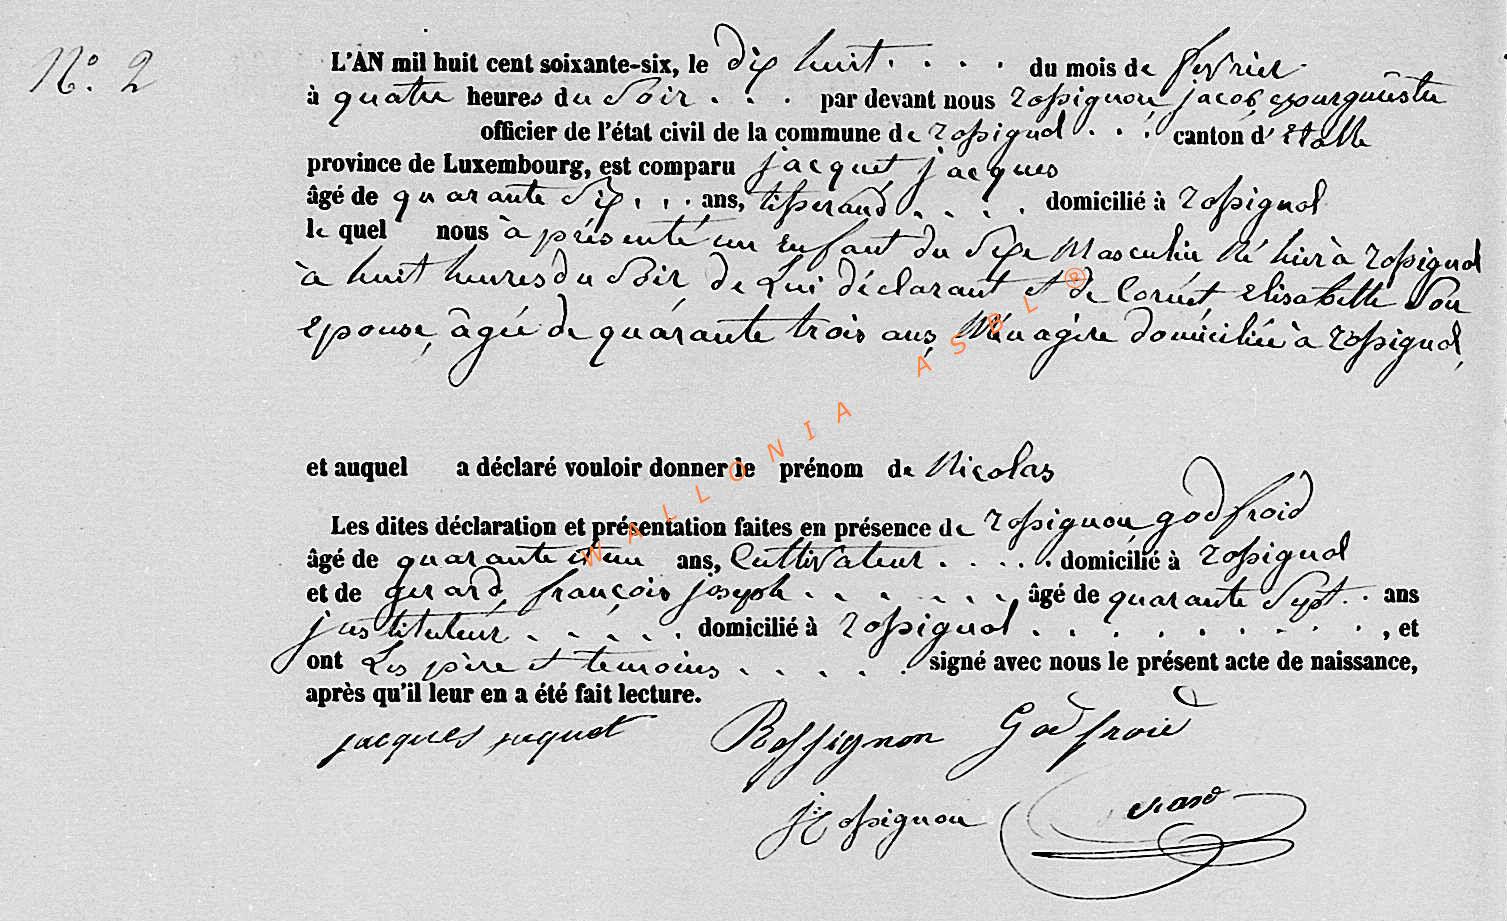 N.º 2
L'AN mil huit cent soixante-six, le dix huit . . . . du mois de fevrier
à quatre heures du Soir . . . par devant nous rossignon, jacob, bourgmestre
officier de l'état civil de la commune de rossignol . . . canton d' etalle
province de Luxembourg, est comparu jacquet, jacques
âgé de quarante Six . . . ans, tisserand . . . . domicilié à rossignol
le quel nous à présenté un enfant du Sexe Masculin Né hier à rossignol
à huit heures du Soir de Lui déclarant et de Cornet Elisabeth Son
epouse, âgée de quarante trois ans, Ménagère domiciliée à rossignol,
et auquel a déclaré vouloir donner le prénom de Nicolas
Les dites déclaration et présentation faites en présence de rossignon godfroid
âgé de quarante et un ans, Cultivateur . . . . . domicilié à rossignol
et de gerard, françois joseph . . . . . . . âgé de quarante Sept . . ans
justituteur . . . . . domicilié à rossignol . . . . . . . . . , et
ont Les père et temoins . . . . . signé avec nous le présent acte de naissance,
après qu'il leur en a été fait lecture.
jacques jaquet Rossignon Godfroid
j rossignon Gerard
WALLONIA ASBL ®